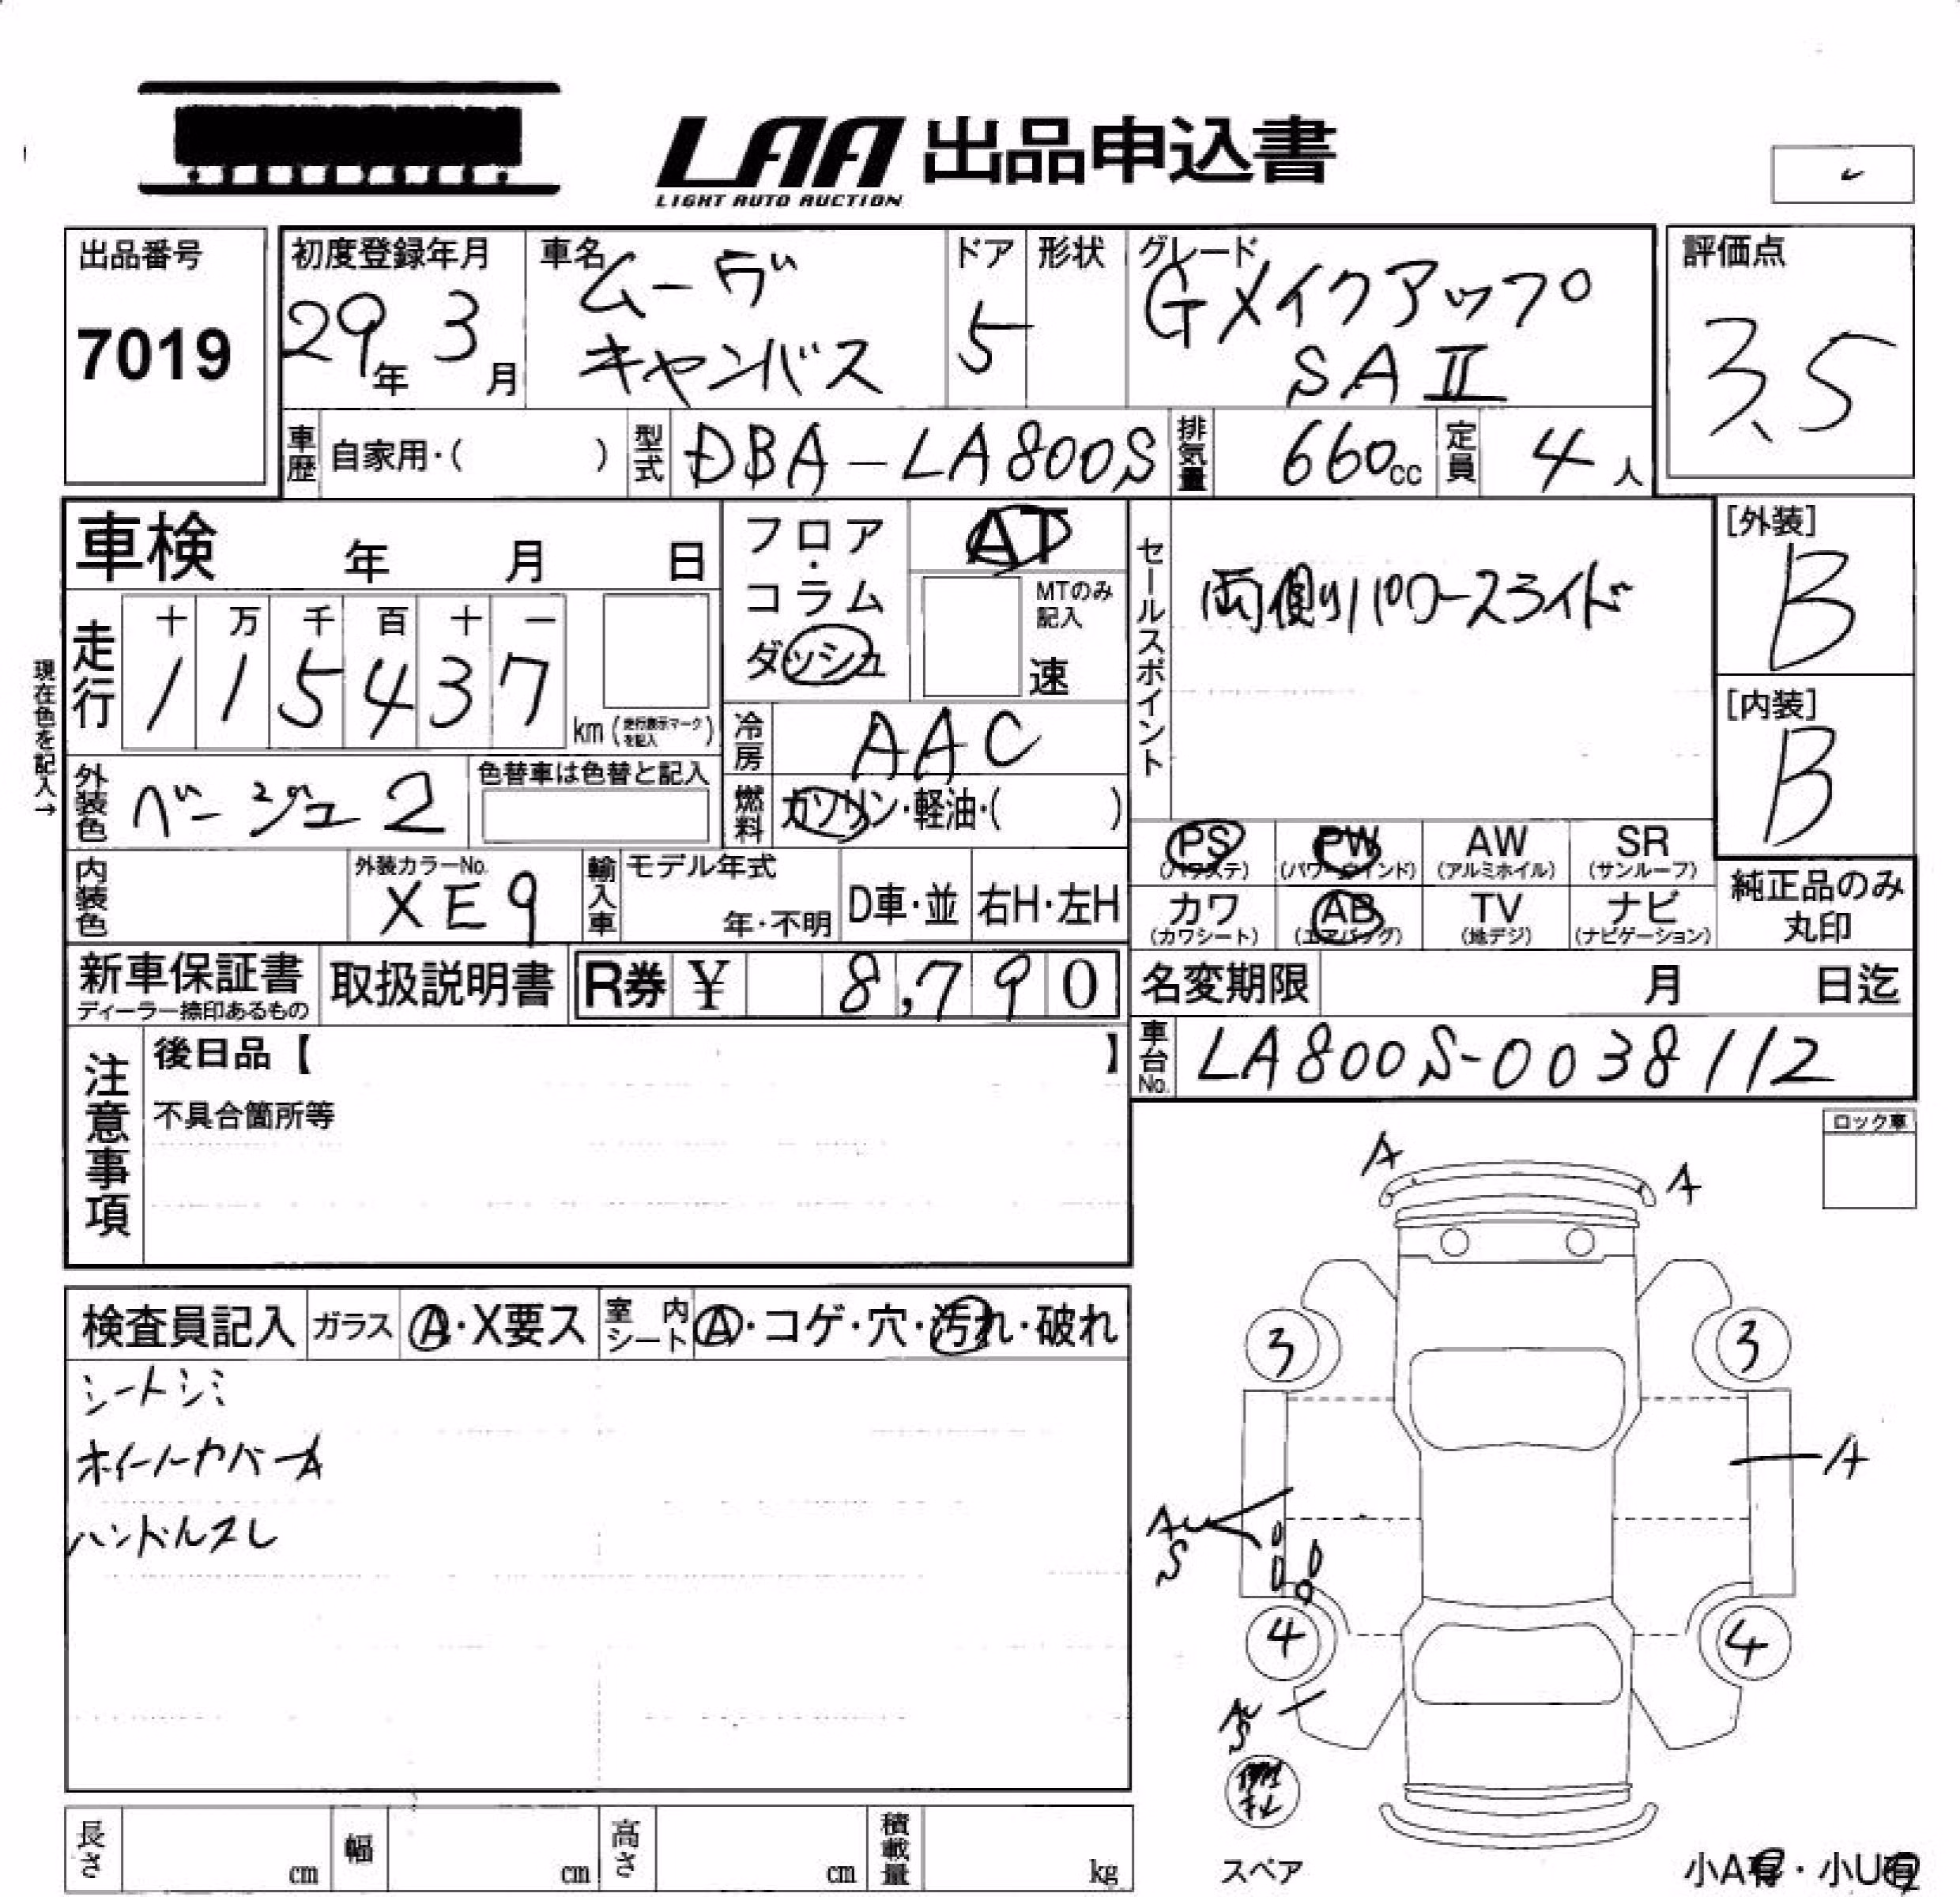 LAA 出品申込書
LIGHT AUTO AUCTION
出品番号
7019
初度登録年月
29年 3月
車名
ムーヴ
キャンバス
ドア
5
形状
グレード
Gメイクアップ
SAⅡ
評価点
3.5
車歴 自家用・( )
型式 DBA-LA800S
排気量 660cc
定員 4人
車検 年 月 日
フロア・コラム
ダッシュ
AT
MTのみ記入
速
セールスポイント
両側パワースライド
[外装]
B
[内装]
B
現在色を記入→
走行
十 万 千 百 十 一
1 1 5 4 3 7
km (走行表示マークを記入)
冷房 AAC
外装色 ベージュ2
色替車は色替と記入
燃料 ガソリン・軽油・( )
PS (パワステ)
PW (パワーウインド)
AW (アルミホイル)
SR (サンルーフ)
カワ (カワシート)
AB (エアバッグ)
TV (地デジ)
ナビ (ナビゲーション)
純正品のみ
丸印
内装色
外装カラーNo.
XE9
輸入車
モデル年式
年・不明
D車・並
右H・左H
新車保証書
ディーラー捺印あるもの
取扱説明書
R券 ¥ 8,790
名変期限 月 日迄
車台No. LA800S-0038112
注意事項
後日品【 】
不具合箇所等
ロック車
A
A
検査員記入
ガラス A・X要ス
室内シート A・コゲ・穴・汚れ・破れ
シートシミ
ホイールカバーA
ハンドルスレ
3
3
A
AU
S
4
4
AU
S
スペア
長さ cm
幅 cm
高さ cm
積載量 kg
小A有・小U有